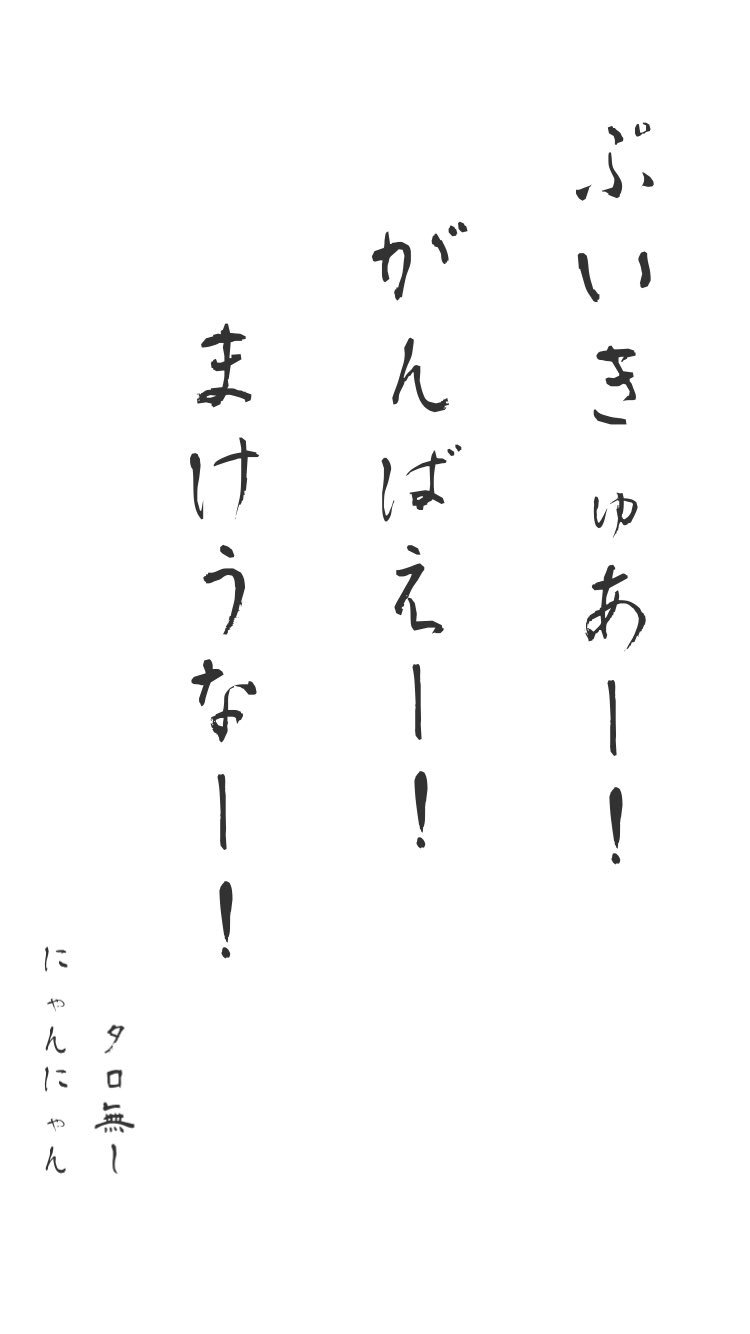 ぷいきゅあー！
がんばえー！
まけうなー！
タロ無し
にゃんにゃん